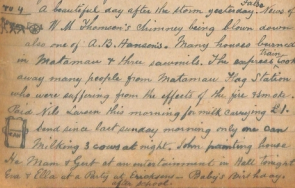 A beautiful day after the storm yesterday. News of
W. M. Thomson's chimney being blown down
also one of A. B. Hansen's. Many houses burned
in Matamau & three sawmills. The express took
away many people from Matamau Flag Station
who were suffering from the effects of the fire & smoke.
Paid Nils Larsen this morning for milk carrying £8.
and since last Sunday morning only one can
Milking 3 cows at night. John painting house
Mam & Gert at an entertainment in Hall tonight
Eva & Ella at a Party at Ericksen Baby's Birthday
after school